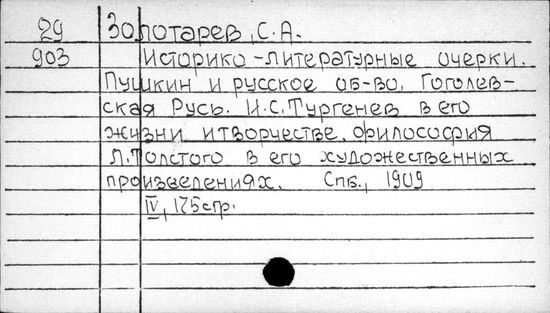 29 Золотарев, С.А.
903 Историко-литературные очерки.
Пушкин и русское об-во. Гоголев-
ская Русь. И.С.Тургенев в его
жизни и творчестве. Философия
Л.Толстого в его художественных
произведениях. Спб., 1909
IV, 175стр.